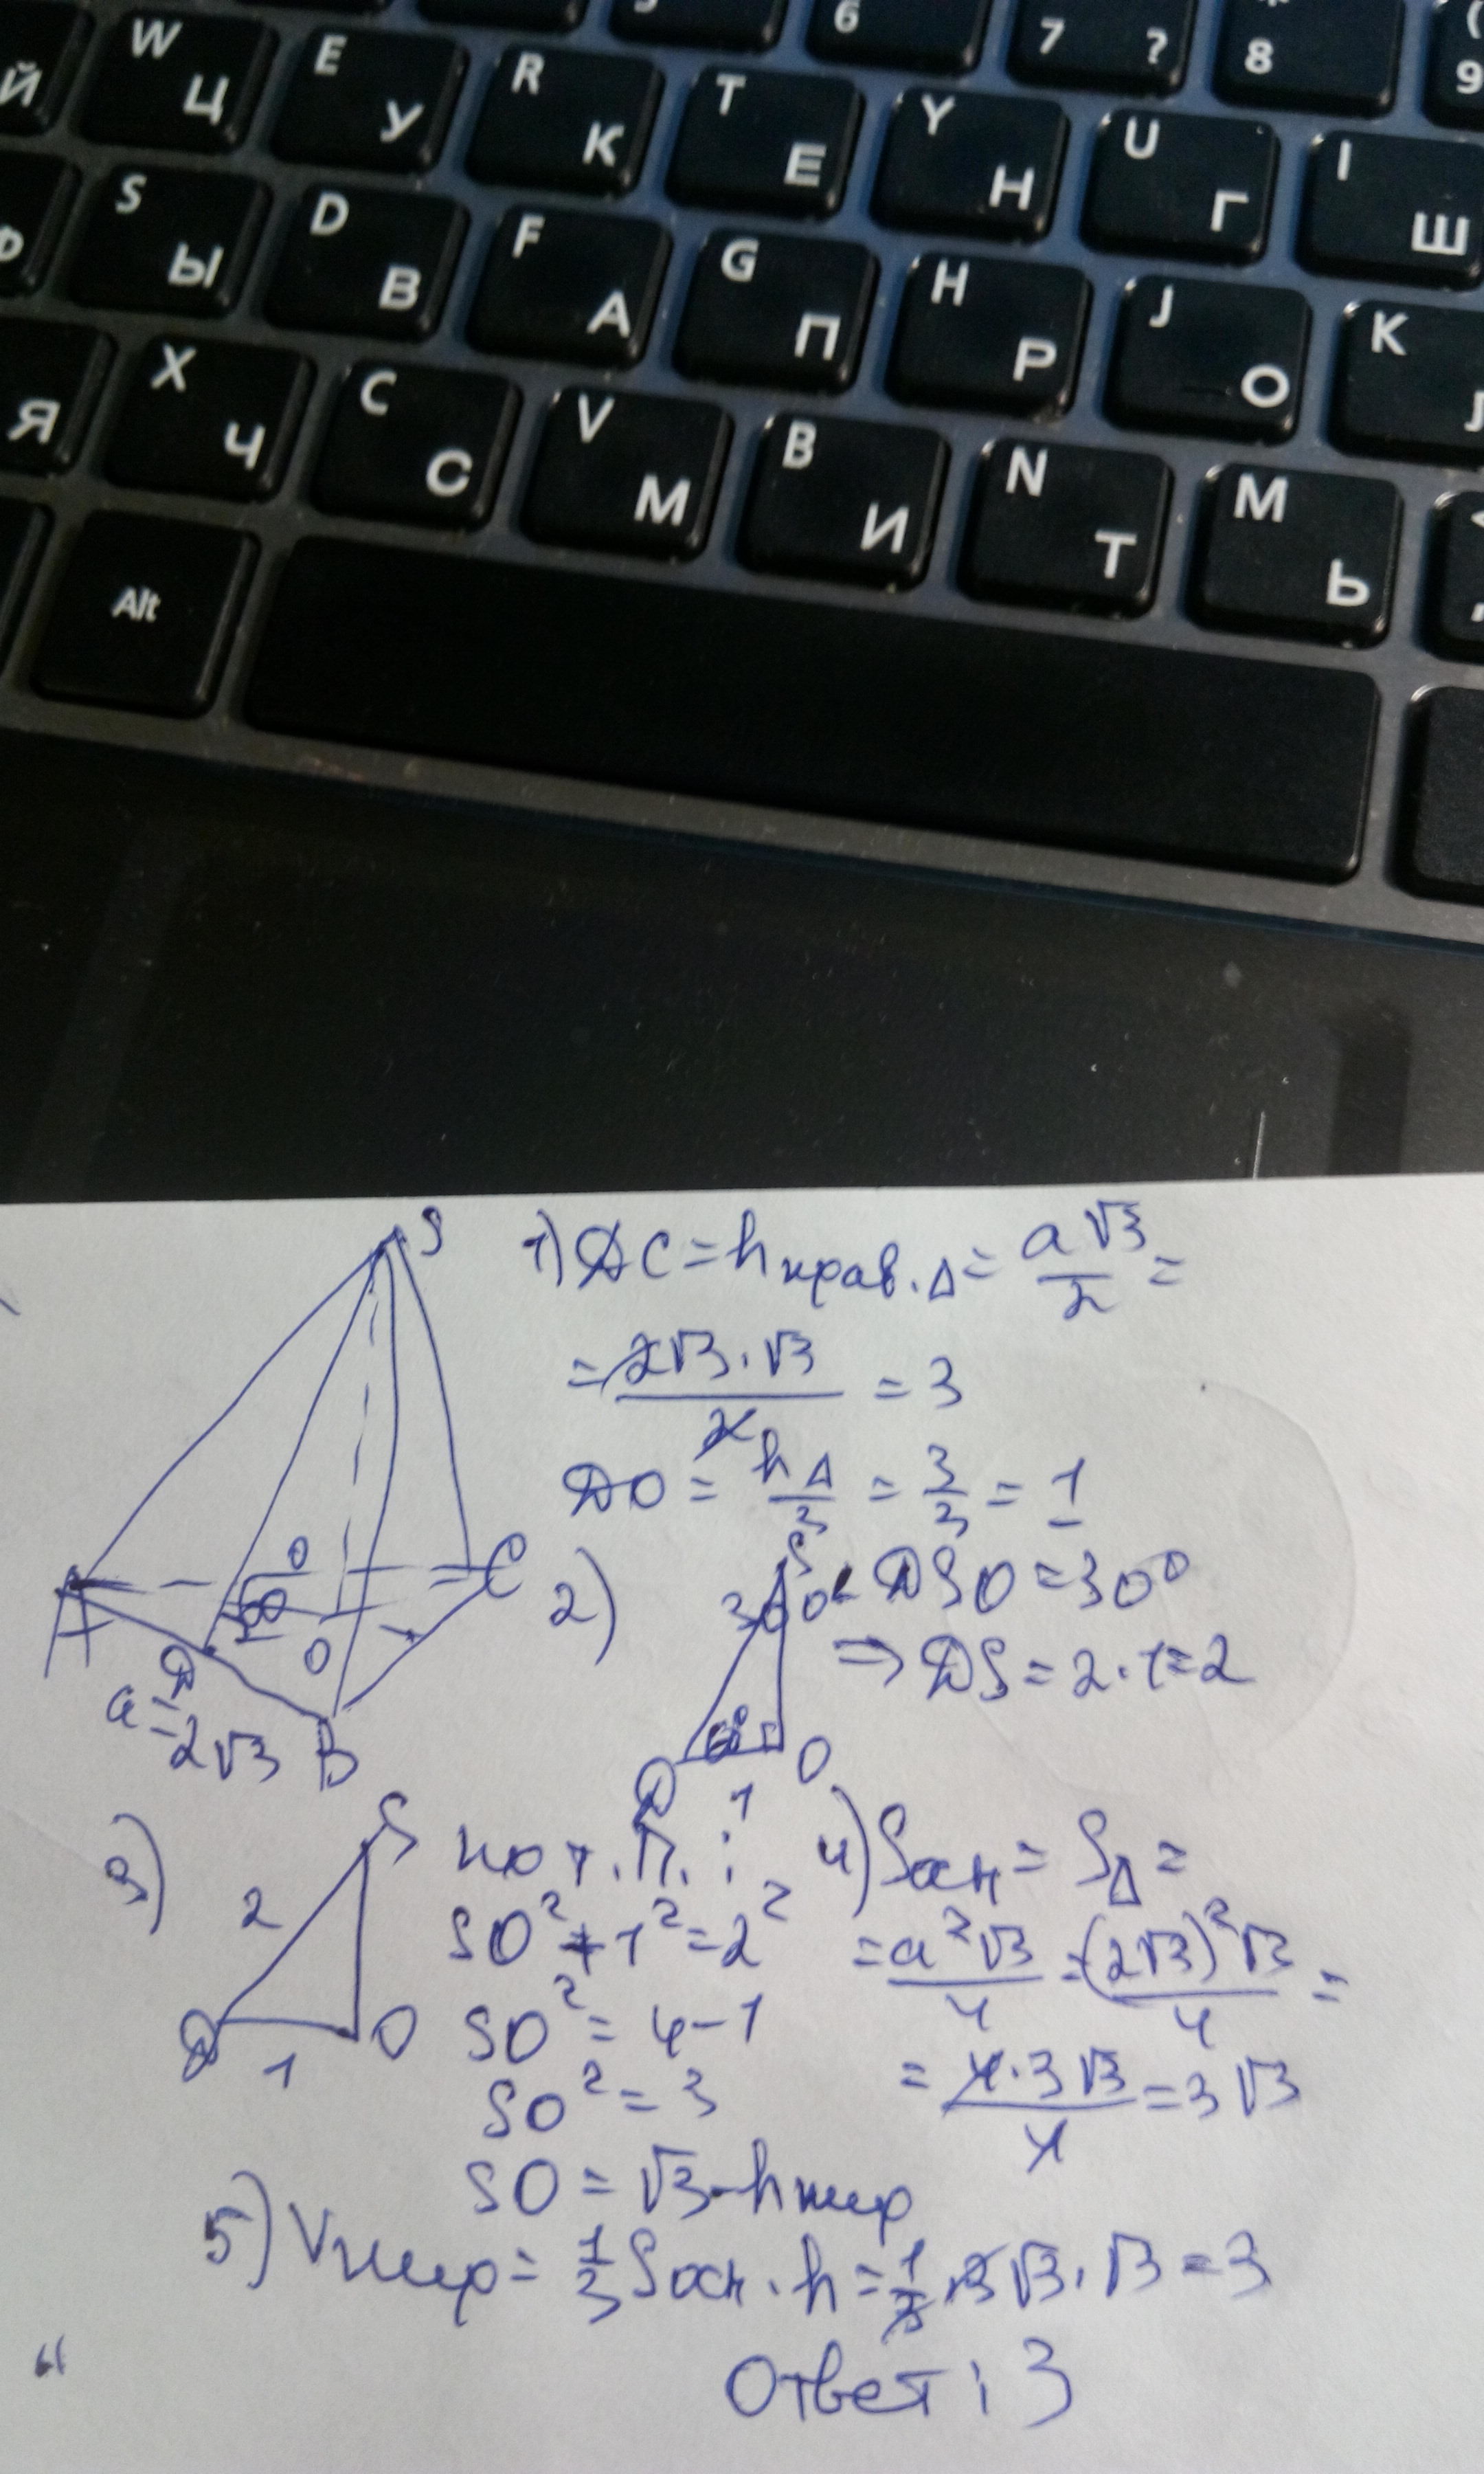 6 7 ? 8 9
Й W Ц E У R К T Е Y Н U Г I Ш
S Ы D В F А G П H Р J О K
Я X Ч C С V М B И N Т M Ь
Alt
S
A
B
C
D
O
60°
a = 2√3
1) DC = h прав. Δ = a√3/2 =
= 2√3·√3/2 = 3
DO = hΔ/3 = 3/3 = 1
2) S 30° D 60° O 1
∠DSO = 30°
⇒ DS = 2·1=2
3) S 2 D 1 O
по т. П. :
SO² + 1² = 2²
SO² = 4-1
SO² = 3
SO = √3 - h пир
4) Sосн = SΔ =
= a²√3/4 = (2√3)²√3/4 =
= 4·3√3/4 = 3√3
5) Vпир = 1/3 Sосн · h = 1/3 · 3√3 · √3 = 3
Ответ: 3